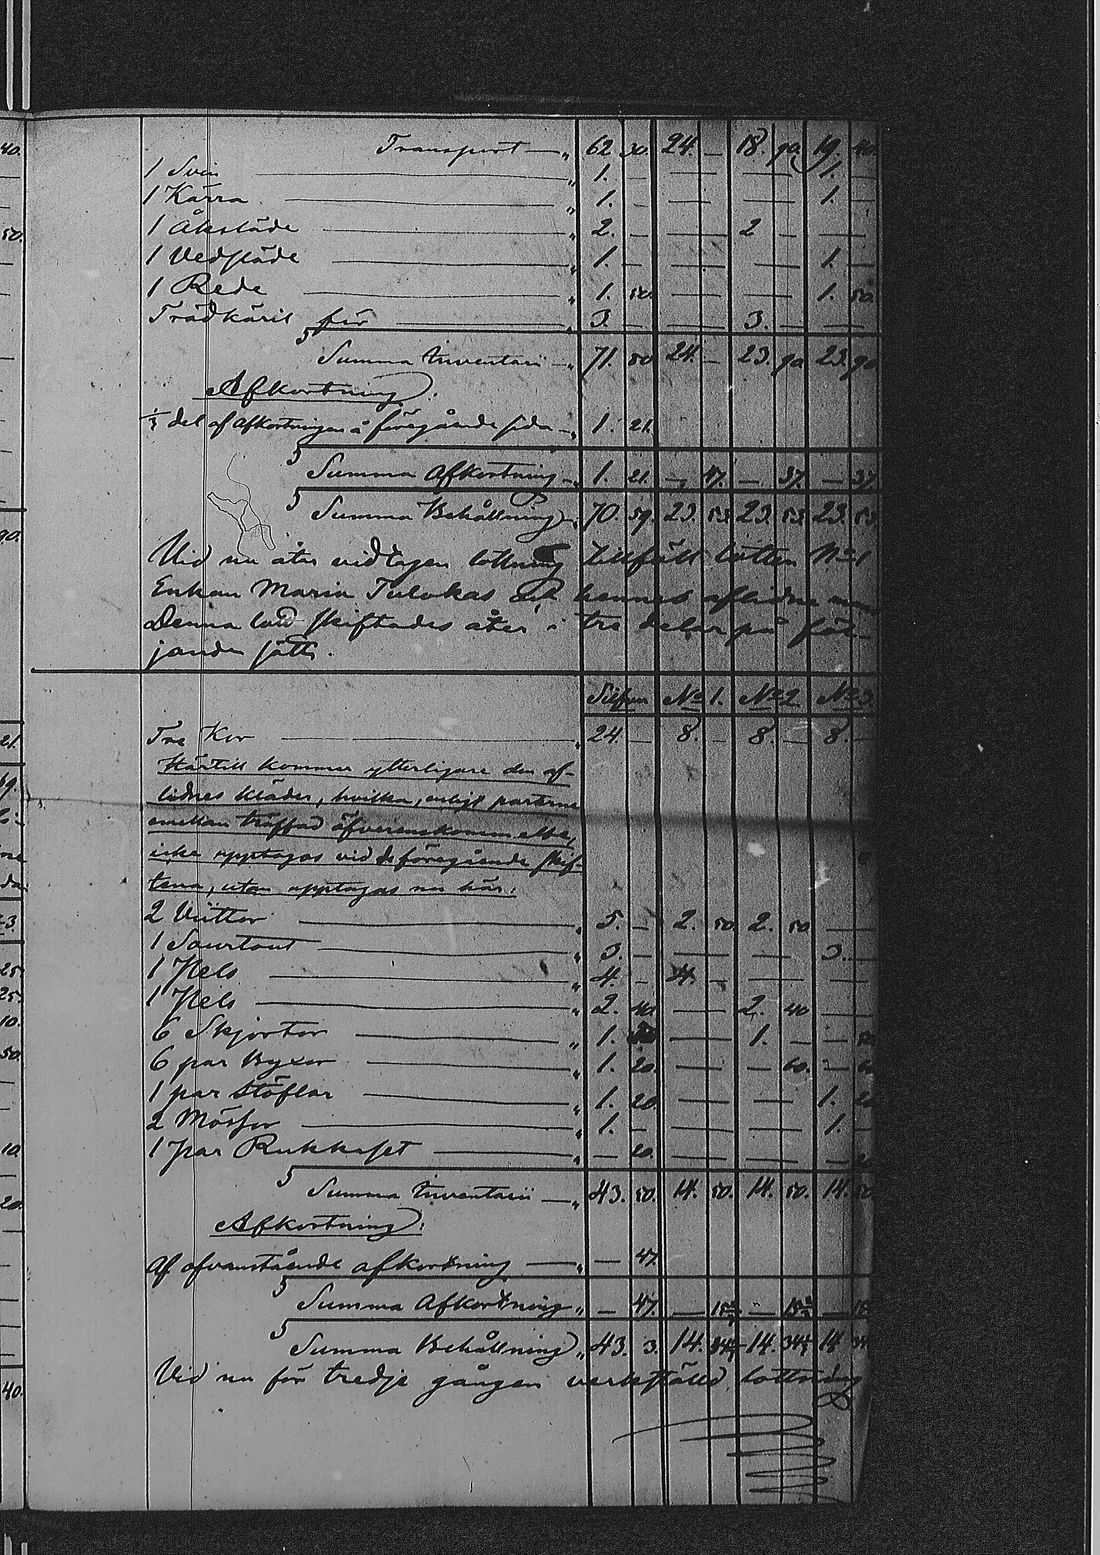 Transport — „ 62 30. 24. — 18. 90 19. 40
1 Svin — „ 1. — — — — — 1. —
1 Kärra — „ 1. — — — — — 1. —
1 Åksläde — „ 2. — — — 2 — — —
1 Vedsläde — „ 1. — — — — — 1. —
1 Rede — „ 1. 50. — — — — 1. 50.
Trädkäril för — „ 3. — — — 3. — — —
S Summa Inventarii — „ 71. 80 24. — 23. 90 23. 90
Afkortning:
⅓ del af afkortningen å föregående sida — „ 1. 21.
S Summa Afkortning — „ 1. 21. — 47. — 37. — 37.
S Summa Behållning „ 70. 59. 23. 53. 23. 53. 23. 53.
Vid nu åter vidtagen lottning tillföll lotten No 1
Enkan Maria Tulokas och hennes aflidne
Denna lott skiftades åter i tre delar på föl-
jande sätt.
Silfver No 1. No 2 No 3
Tre Kor — „ 24. — 8. — 8. — 8. —
Härtill kommer ytterligare den af-
lidnes kläder, hvilka, enligt parterne
emellan träffad öfverenskommelse,
icke upptagas vid de föregående skif-
tena, utan upptagas nu här.
2 — „ 5. — 2. 50 2. 50. — —
1 Sourtout — „ 3. — — — — — 3. —
1 Pels — „ 4. — 4. — — — — —
1 Pels — „ 2. 40. — — 2. 40 — —
6 Skjortor — „ 1. — — 1. — — 50
6 par Byxor — „ 1. 20. — — — 60. — 60
1 par Stöflar — „ 1. 20. — — — — 1. 20
2 Mössor — „ 1. — — — — — 1. —
1 par Rukkaset — „ — 20. — — — — — 20
S Summa Inventarii — „ 43. 50. 14. 50. 14. 50. 14. 50
Afkortning:
Af ofvanstående afkortning — „ — 47.
S Summa Afkortning „ — 47. — 15⅔ — 15⅔ — 15⅔
S Summa Behållning „ 43. 3. 14. 34⅓ 14. 34⅓ 14. 34⅓
Vid nu för tredje gången verkställd lottning